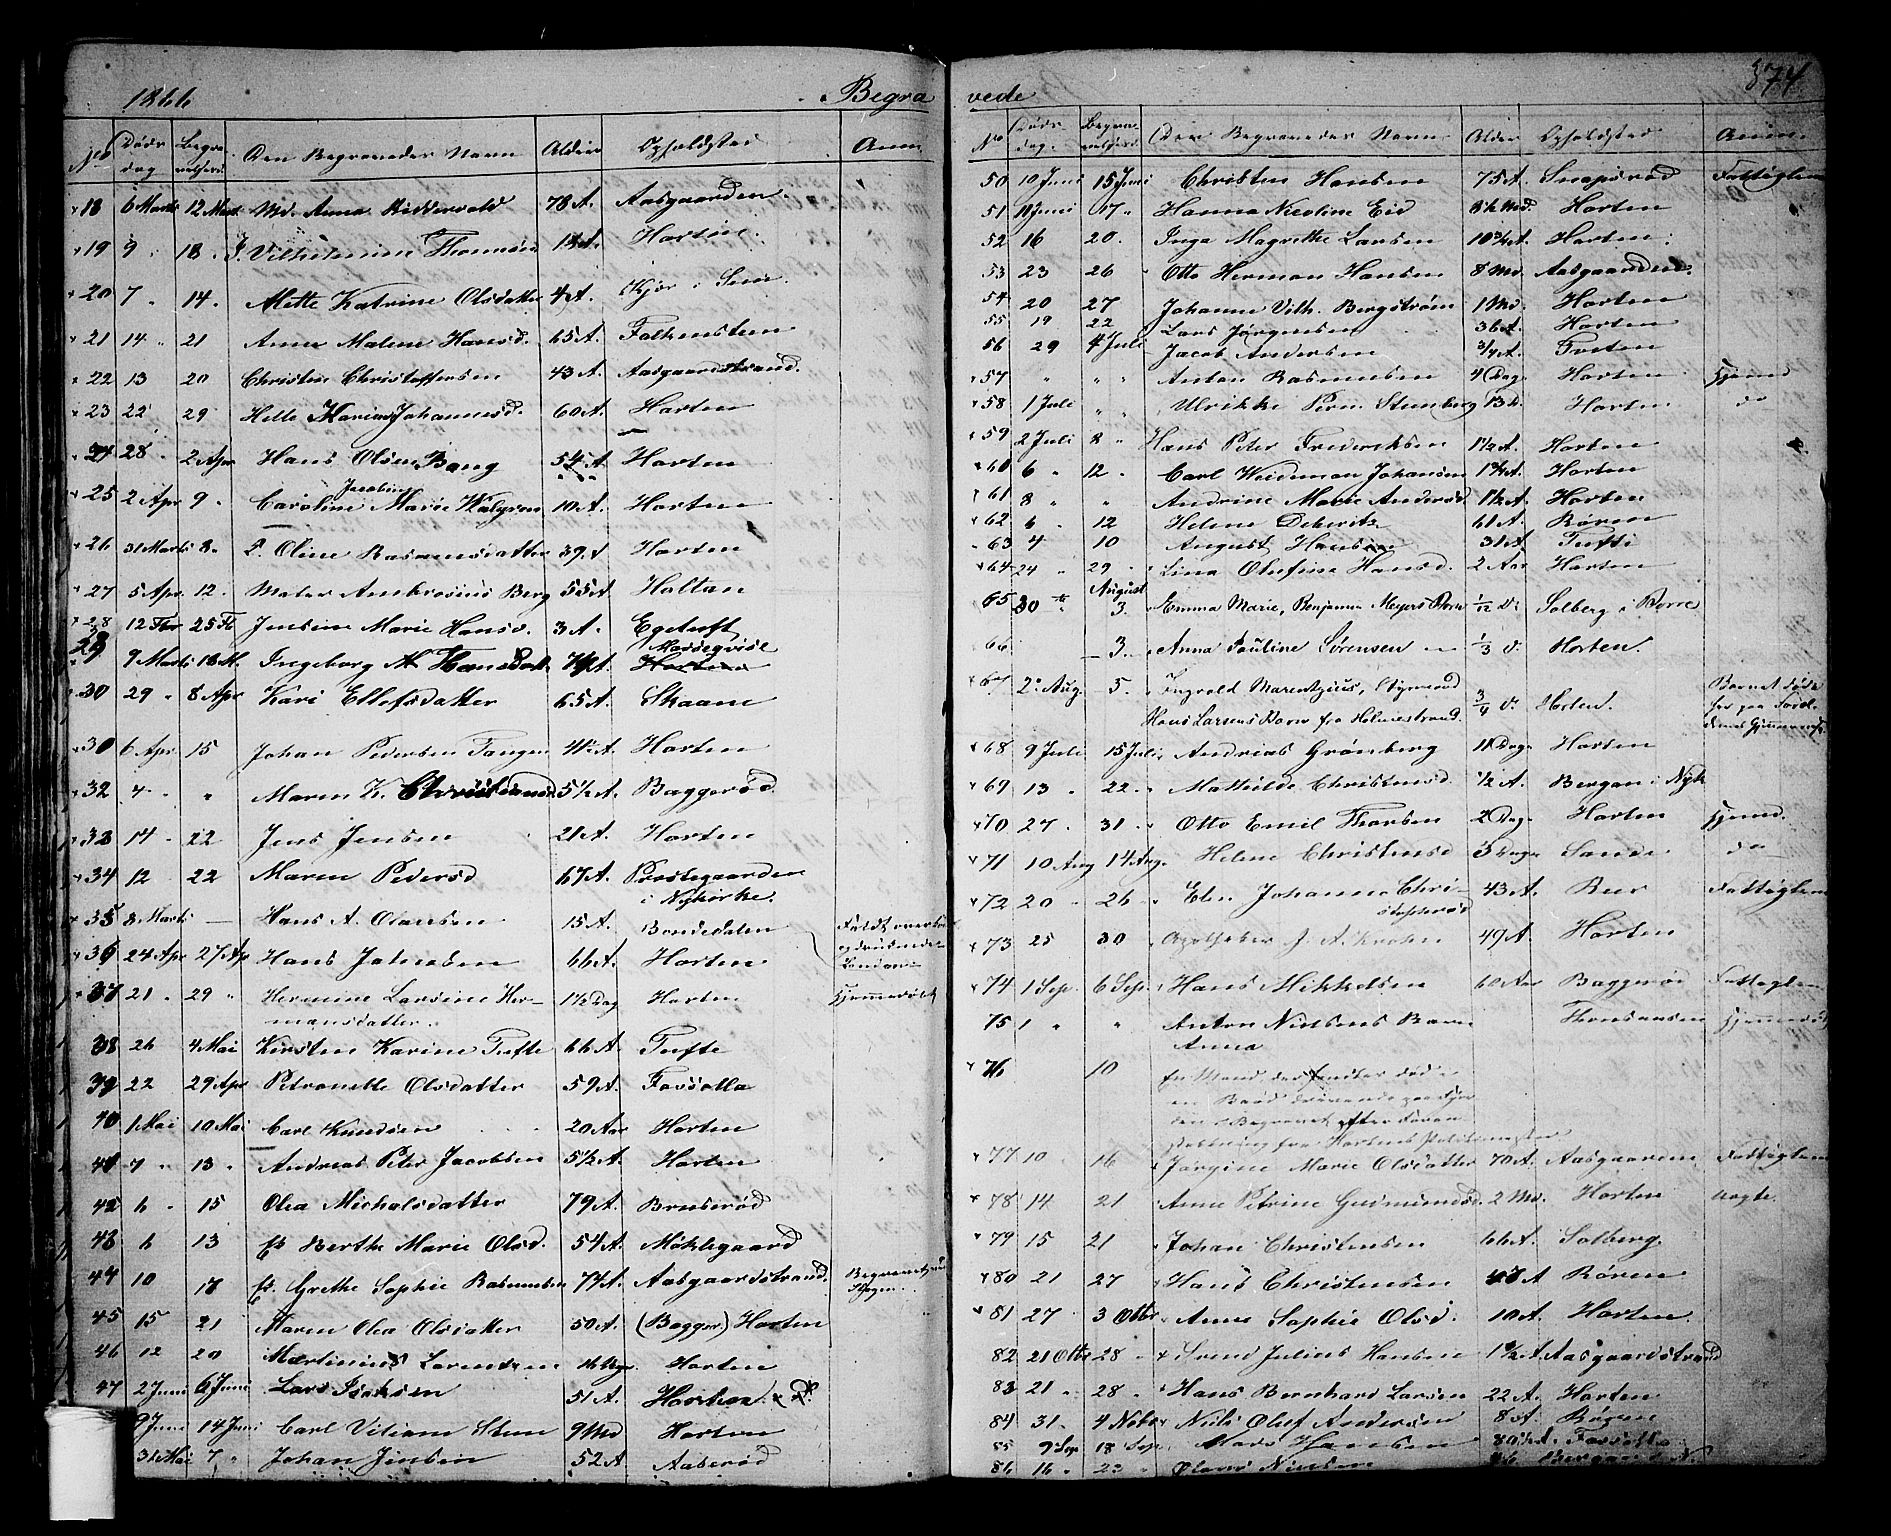 1866 Begra
No Døds dag Begra velsesd. Den Begravedes Navn Alder Opholdsted Anm.
18 6 Marts 12 Mart Md. Anna Riddervold 78 A. Aasgaarden
19 9 18 J. Vilhelmine Thomsen Horten
20 7 " 14. Mette Katrine Olsdatter 4 A. Kjær i Sem
21 14 " 21 Anne Malene Hansd. 65 A. Falkensteen
22 13 20 Christine Christoffersen 43 A. Aasgaardstrand.
23 22 29 Helle Maria Johannesd. 60 A. Horten
24 28 " 2 Apr Hans Olsen Bang 54 A. Horten
Jacobine
25 2 Apr 9 " Caroline Marie Walgren 10 A. Horten
26 31 Marts 8 " Oline Rasmusdatter 39 A Horten
27 5 Apr 12. Mater Ambrosius Berg 55 A. Holtan
28 12 Fbr 25 Fb Jensine Marie Hansd. 3 A. Egetuft
29 9 Marts 18 M. Ingeborg M. Hansdatt
30 29 " 8 Apr Kari Ellefsdatter 65 A. Skaane
30 6 Apr 15 Johan Pedersen Tangen Horten
32 4 " " Maren K. Christiansd 5½ A. Baggerød
33 14 " 22 Jens Jensen 21 A. Horten
34 12 22 Maren Pedersd 67 A. Præstegaarden
i Nykirke.
35 8 Marts — Hans A. Olausen 15 A. Bondedalen Faldt overbord
36 24 Apr 27 Ap Hans Jahnsen 66 A. Horten
37 21 " 29 " Hermine Larsine Her- 1½ Dag Horten Hjemmedøbt
mansdatter.
38 26 4 Mai Kirsten Karine Tufte 66 A. Tufte
39 22 29 Apr Petronelle Olsdatter 59 A. Fossolla
40 1 Mai 10 Mai Carl Knudsen 20 Aar Horten
41 7 " 13 " Andreas Peter Jacobsen 5½ A. Horten
42 6 " 15 Olea Michalsdatter 79 A. Bruserød
43 6 13 Berthe Marie Olsd. 54 A. Miklegaard
44 10 18 Grethe Sophie Rasmussen 77 A. Aasgaardstrand.
45 15 21 Maren Olea Olsdatter 50 A. (Bagger) Horten
46 12 20 Martinius Lorendsen 16 Horten
47 2 Juni 6 Juni Lars Isaksen 51 A. Horten
9 Juni 14 Juni Carl Viliam Steen 9 Md Horten
31 Mai 7 " Johan Jensen 52 A Aaserød
vede 374
No Døds dag. Begra- velsesd. Den Begravedes Navn Alder Opholdsted Anm.
50 10 Juni 15 Juni Christen Hansen 75 A. Snapsrød Fattiglem
51 11 Juni 17 " Hanna Nicoline Eid 8½ Md. Horten
52 16 20. Inga Magrethe Larsen 10¾ A. Horten
53 23 26 Otto Herman Hansen 8 Md. Aasgaarden
54 20 27 Johanne Vilh. Bergstrøm 1 Md Horten
55 19 22 Lars Jørgensen 36 A. Horten
56 29 4 Juli Jacob Andersen ¾ A. Tveten
57 " " " Anton Rasmussen 4 Dag. Horten Hjemd
58 1 Juli " " Ulrikke Pern. Stenberg Horten do
59 2 Juli 8 " Hans Peter Frederiksen 1½ A. Horten
60 6 " 12 " Carl Weideman Johansen 1¾ A. Horten
61 8 " " Andrine Marie Andersd 1½ A. Horten
62 6 12 Helene Deberitz 61 A. Røren
63 4 10 August Hansen 31 A Tufte
64 24 " 29 " Lina Olufine Hansd. 2 Aar Horten
August
65 30 " 3 Emma Marie, Benjamin Meyers Barn 1/12 d: Solberg i Borre
66 — 3. Anna Pauline Sørensen 1/3 d: Horten.
67 2 Aug. 5. Ingvald Marentzius, Styrmand ¾ d. Horten. Barnet døde
Hans Larsens Barn fra Holmestrand. her paa
68 9 Juli 15 Juli Andreas Grønberg 11 Dag Horten
69 13 " 22 " Mathilde Christensd. ½ A. Bergan i Nyk
70 27 " 31 " Otto Emil Thorsen 2 Dag. Horten Hjemd.
71 10 Aug 14 Aug. Helene Christensd 3 Dage Sande do
72 20 " 26 " Elen Johanne Chri- 43 A. Bur Fattiglem
stophersd
73 25 30 Apotheker J. A. Krohn 49 A. Horten
74 1 Sep. 6 Sep. Hans Mikkelsen 60 Aar Baggerød Fattiglem
75 1 " " Anton Nielsens Barn Hjemmedøbt
Anna
76 10 En Mand der fandtes død i
en Baad drivende
den Begravet efter Foran
staltning fra Hortens Politimester
77 10 16 Jørgine Marie Olsdatter 70 A. Aasgaarden Fattiglem
78 14 21 Anne Petrine Gudmundsd. 2 Md. Horten uægte.
79 15 21 Johan Christensen 66 A. Solberg
80 21 27 Hans Christensen Røren
81 27 3 Otbr Anne Sophie Olsd. 10 A. Horten.
82 21 Otb 28 " Svend Julius Hansen 1½ A Aasgaardstrand
83 21 " 28 " Hans Bernhard Larsen 22 A. Horten
84 31 " 4 Nobr Niels Oluf Andersen 8 A. Røren
85 9 Sep 18 Sep. Mads Hansen 80 Fossolla
86 16 " 23 " Olaves Nielsen